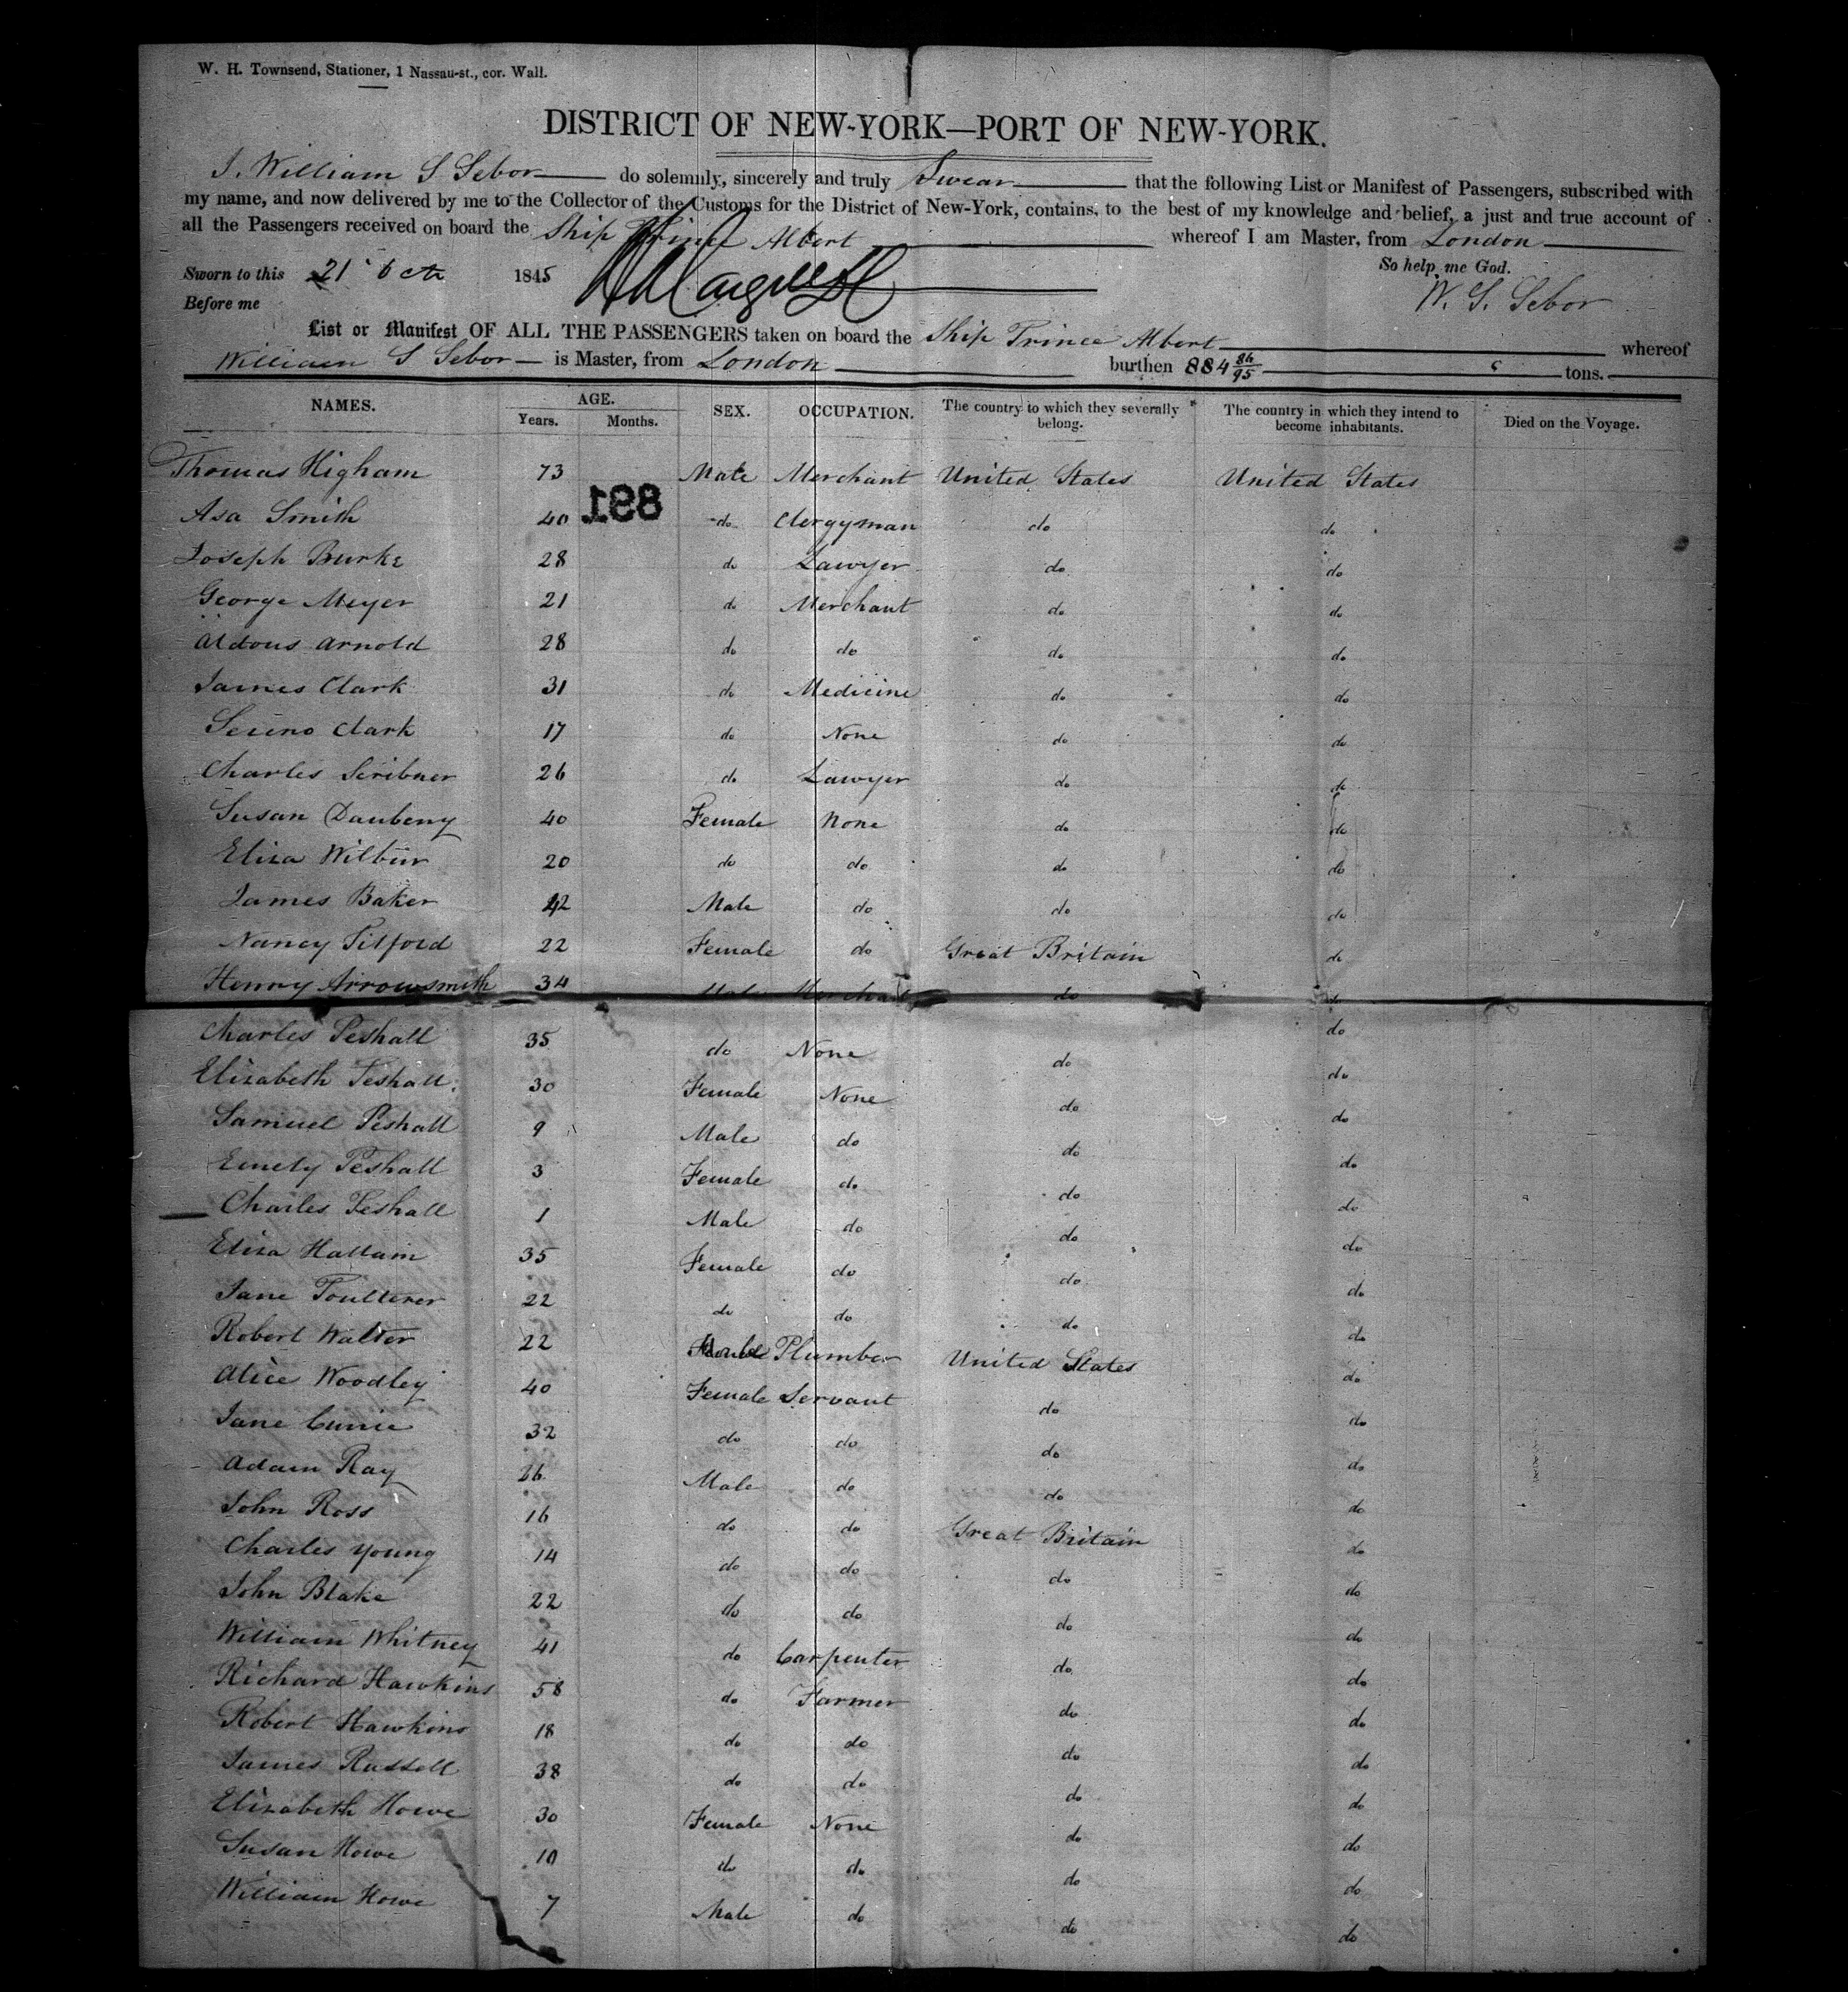 W. H. Townsend, Stationer, 1 Nassau-st., cor. Wall.
DISTRICT OF NEW-YORK—PORT OF NEW-YORK.
I, William S Sebor do solemnly, sincerely and truly Swear that the following List or Manifest of Passengers, subscribed with
my name, and now delivered by me to the Collector of the Customs for the District of New-York, contains, to the best of my knowledge and belief, a just and true account of
all the Passengers received on board the Ship Prince Albert whereof I am Master, from London
So help me God.
Sworn to this 21 Oct 1845
W. S. Sebor
Before me
List or Manifest OF ALL THE PASSENGERS taken on board the Ship Prince Albert whereof
William S Sebor is Master, from London burthen 884 86/95 tons.
NAMES. AGE. SEX. OCCUPATION. The country to which they severally belong. The country in which they intend to become inhabitants. Died on the Voyage.
Years. Months.
Thomas Higham 73 Male Merchant United States United States
891
Asa Smith 40 do Clergyman do do
Joseph Burke 28 do Lawyer do do
George Meyer 21 do Merchant do do
Aldous Arnold 28 do do do do
James Clark 31 do Medicine do do
Sereno Clark 17 do None do do
Charles Scribner 26 do Lawyer do do
Susan Daubeny 40 Female None do do
Eliza Wilbur 20 do do do do
James Baker 42 Male do do do
Nancy Titford 22 Female do Great Britain do
Henry Arrowsmith 34 Male Merchant do do
Charles Peshall 35 do None do do
Elizabeth Peshall 30 Female None do do
Samuel Peshall 9 Male do do do
Emely Peshall 3 Female do do do
Charles Peshall 1 Male do do do
Eliza Hallam 35 Female do do do
Jane Poulterer 22 do do do do
Robert Walter 22 Male Plumber United States do
Alice Woodley 40 Female Servant do do
Jane 32 do do do do
Adam Ray 26 Male do do do
John Ross 16 do do Great Britain do
Charles Young 14 do do do do
John Blake 22 do do do do
William Whitney 41 do Carpenter do do
Richard Hawkins 58 do Farmer do do
Robert Hawkins 18 do do do do
James Russell 38 do do do do
Elizabeth Howe 30 Female None do do
Susan Howe 10 do do do do
William Howe 7 Male do do do